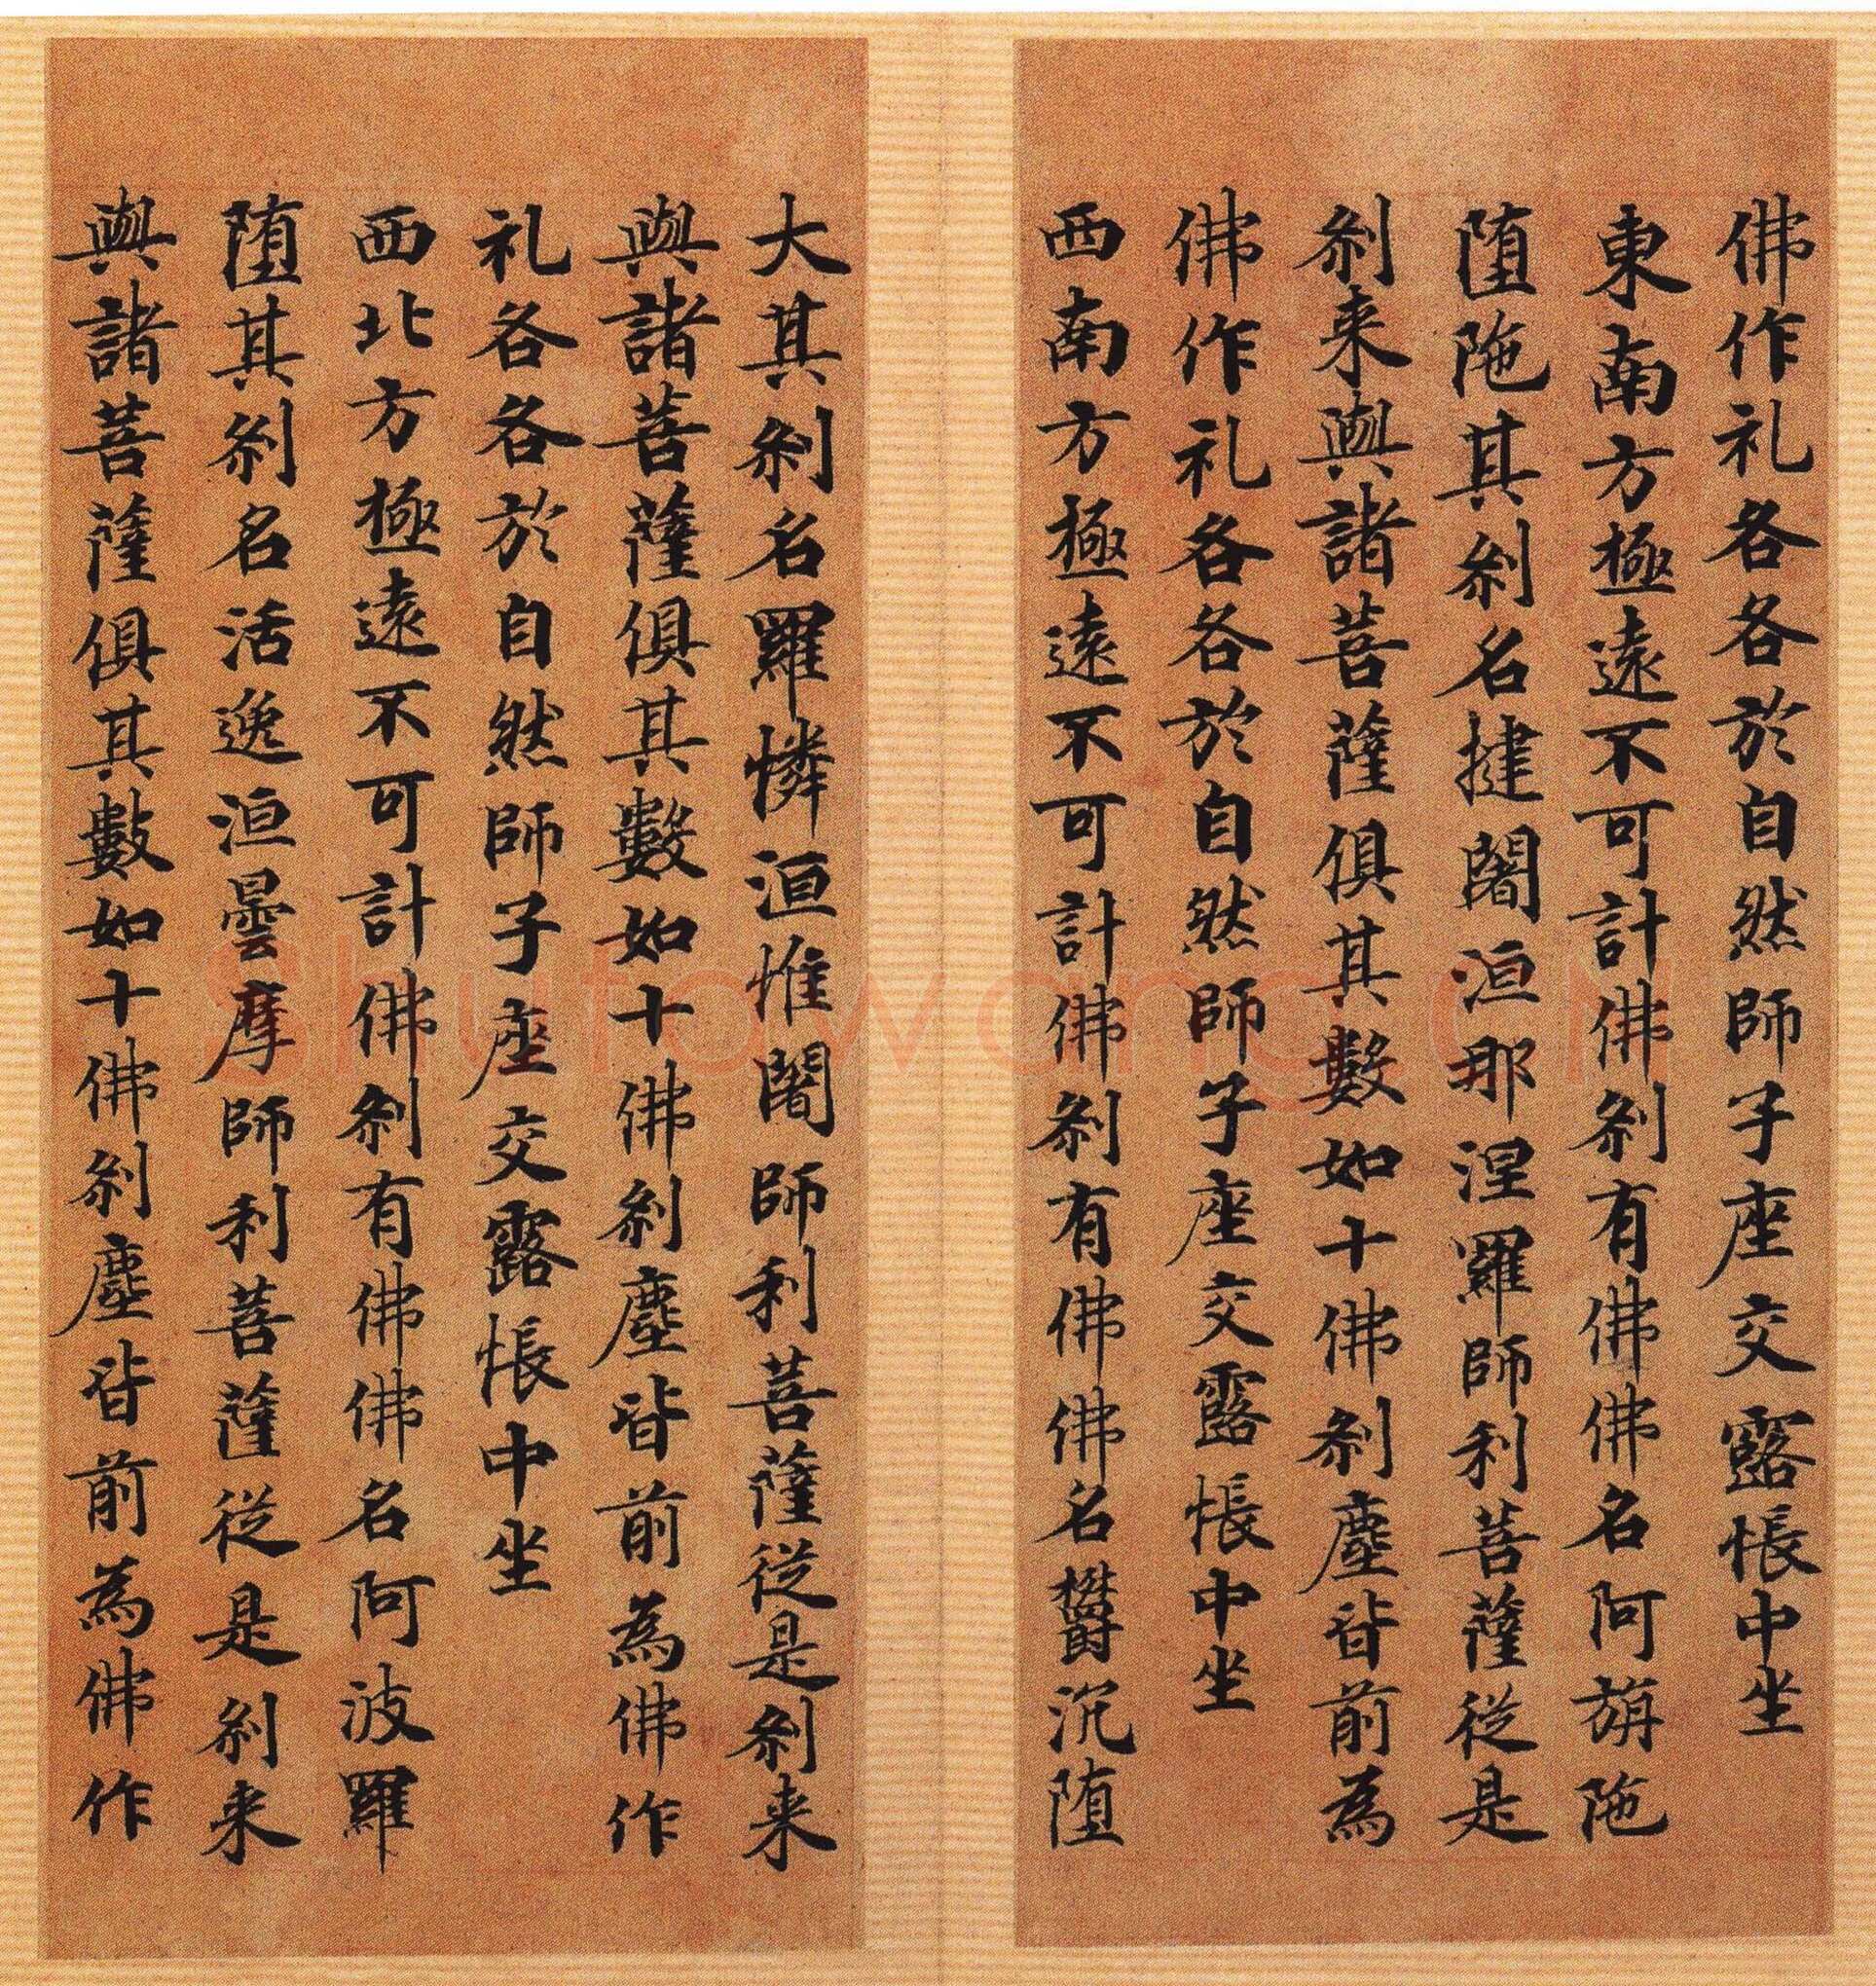 佛作礼各各於自然師子座交露帳中坐
東南方極遠不可計佛刹有佛佛名阿旃陁
堕陁其刹名揵闍洹那涅羅師利菩薩從是
刹来與諸菩薩俱其數如十佛刹塵皆前為
佛作礼各各於自然師子座交露帳中坐
西南方極遠不可計佛刹有佛佛名欝沉堕
大其刹名羅憐洹惟闍師利菩薩從是刹来
與諸菩薩俱其數如十佛刹塵皆前為佛作
礼各各於自然師子座交露帳中坐
西北方極遠不可計佛刹有佛佛名阿波羅
堕其刹名活逸洹曇摩師利菩薩從是刹来
與諸菩薩俱其數如十佛刹塵皆前為佛作
shufawang.cn